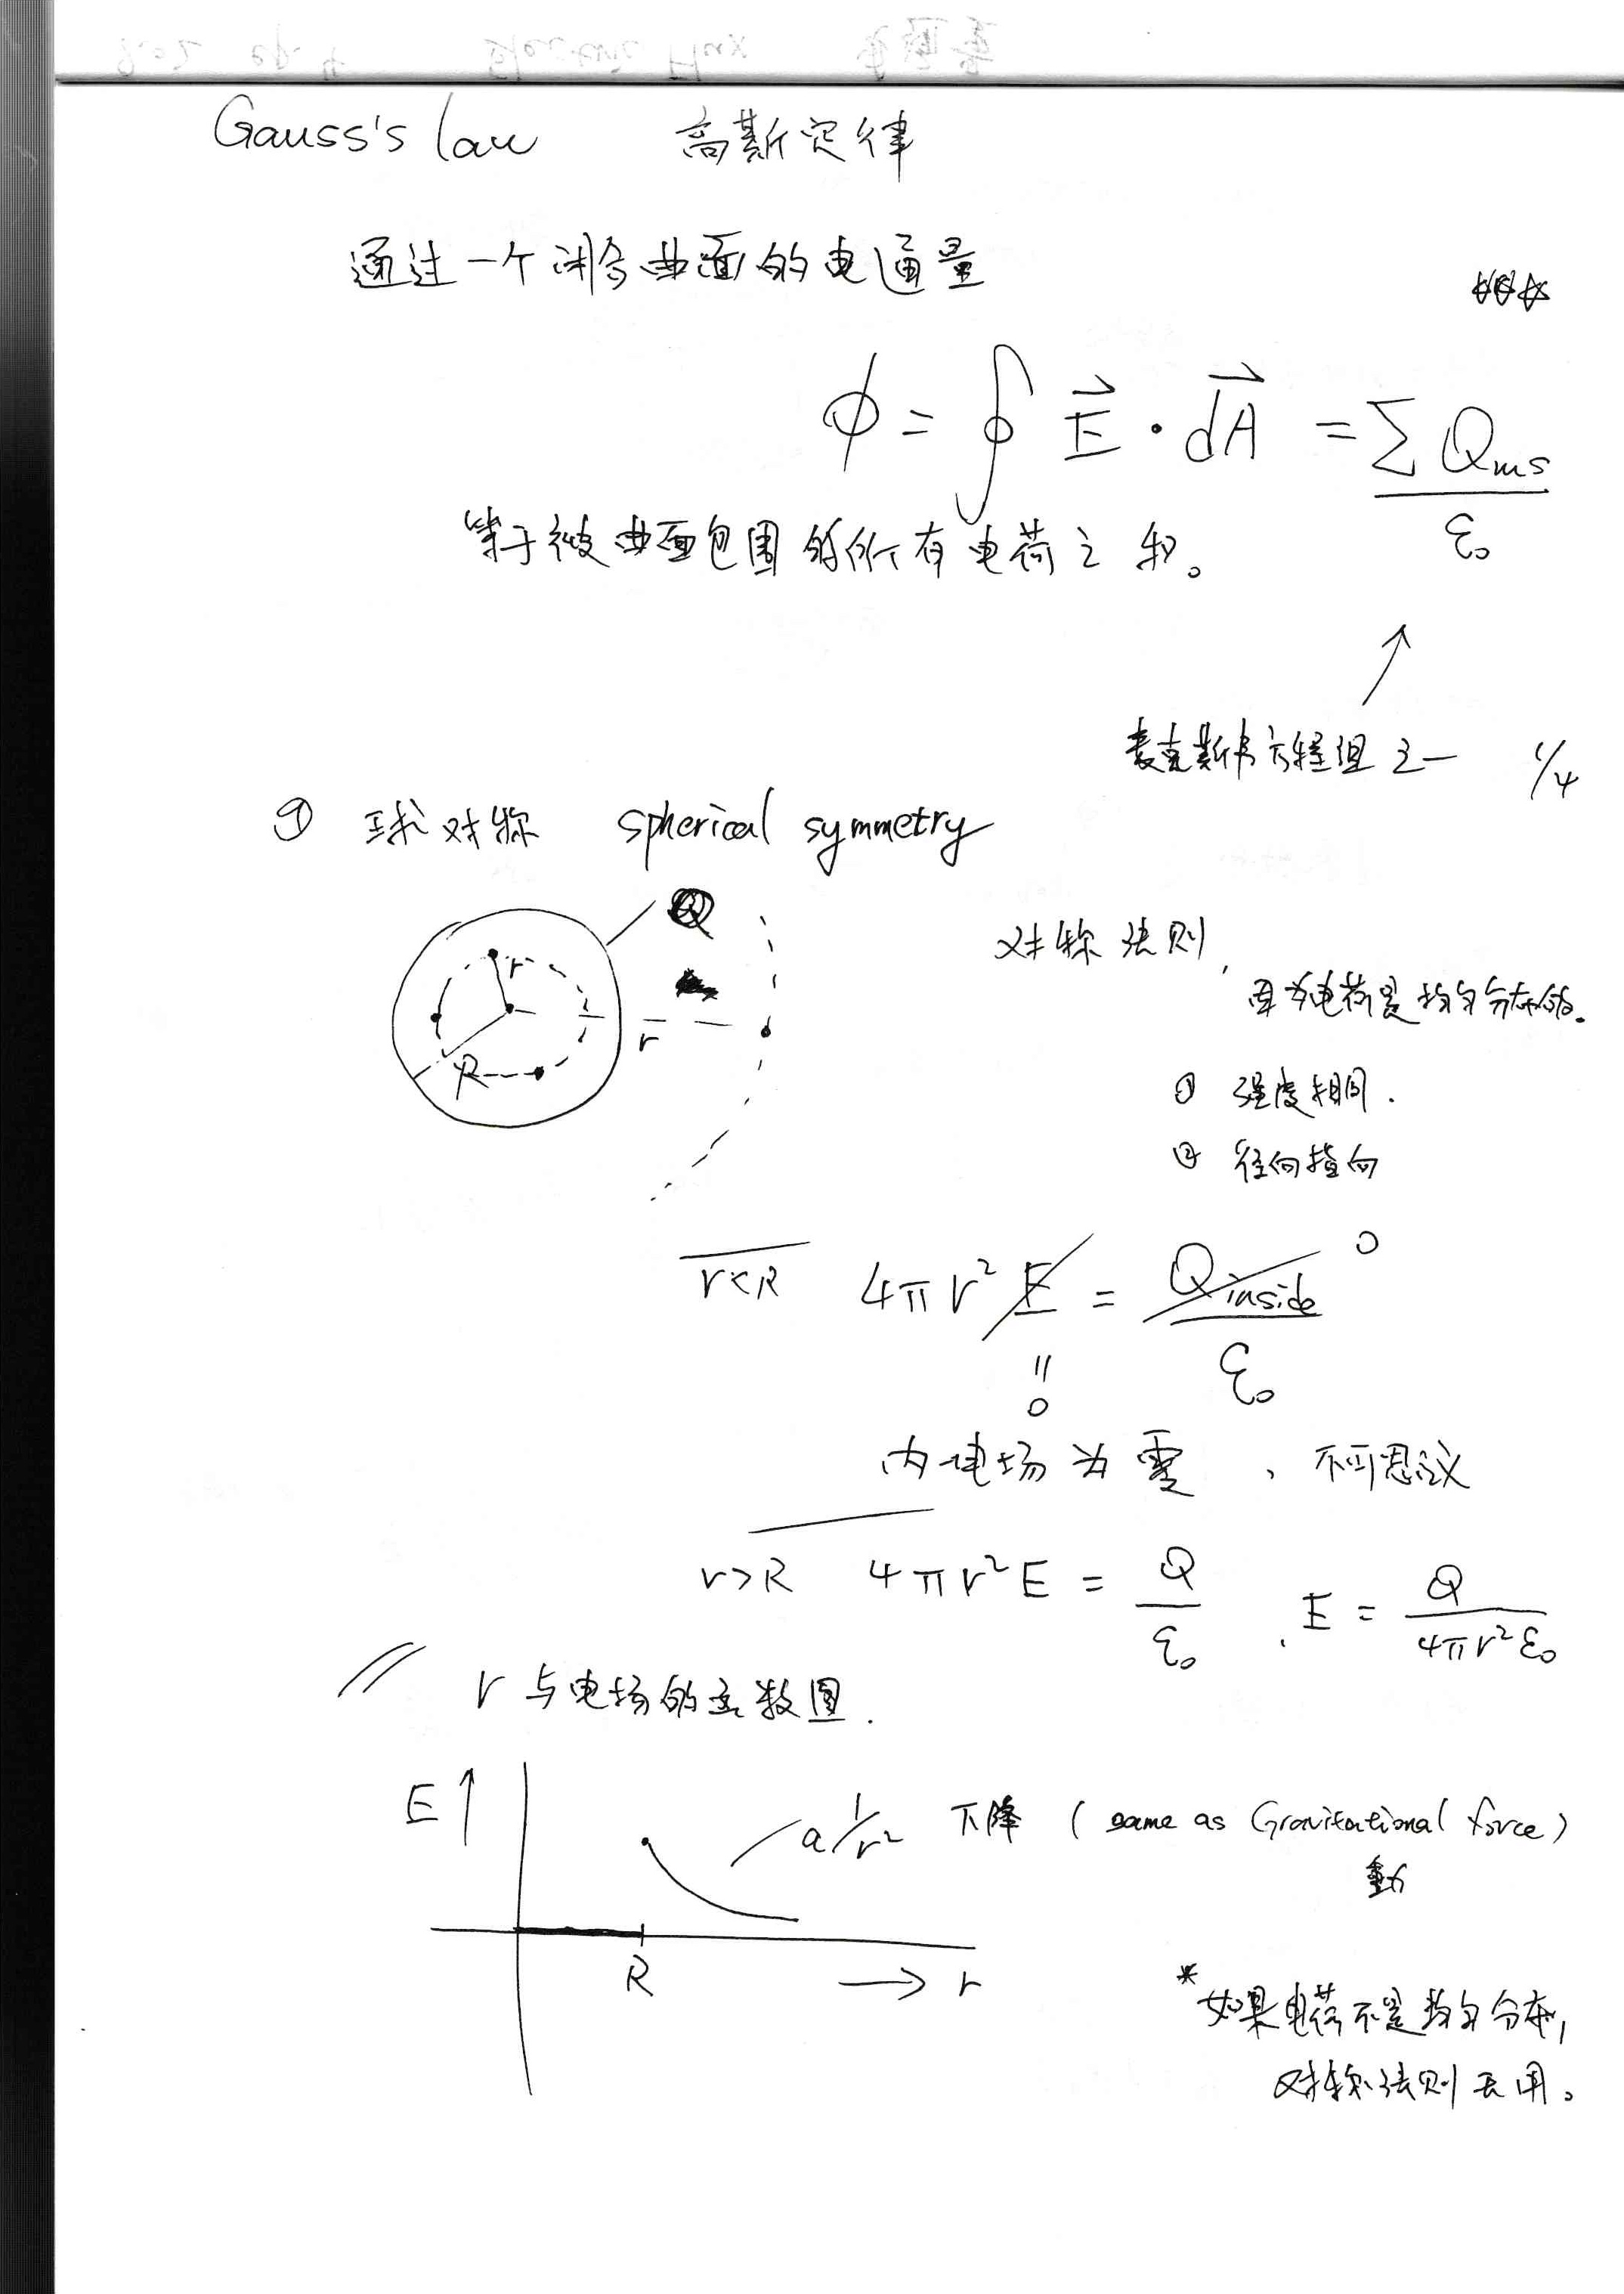 Gauss's law 高斯定律
通过一个闭合曲面的电通量
ϕ = ∮ E⃗ · dA⃗ = ΣQins / ε₀
等于被曲面包围的所有电荷之和。
麦克斯韦方程组之一 1/4
① 球对称 spherical symmetry
Q
r
R
r
对称法则,
因为电荷是均匀分布的.
① 强度相同.
② 径向指向
r<R 4πr² E = Qinside / ε₀
0
=
0
内电场为零, 不可思议
r>R 4πr²E = Q/ε₀ , E = Q / 4πr²ε₀
r与电场的函数图.
E↑
a 1/r² 下降 (same as Gravitational force)
R → r
*如果电荷不是均匀分布,
对称法则无用。